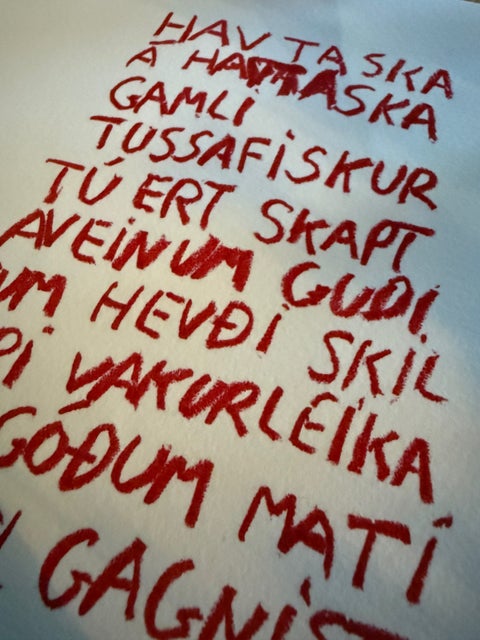 HAV TASKA
Á HAVTASKA
GAMLI
TUSSAFISKUR
TÚ ERT SKAPT
AV EINUM GUÐI
UM HEVÐI SKIL
PI VAKURLEIKA
GÓÐUM MATÍ
GAGNIS